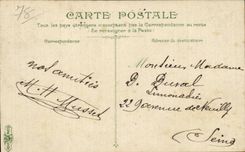 78
CARTE POSTALE
Tous les pays étrangers n'acceptent pas la Correspondance au recto
Se renseigner à la Poste
Correspondance
Adresse du destinataire
nos amitiés
Monsieur Madame
Duval
Limonadier
22 avenue de Neuilly
Seine